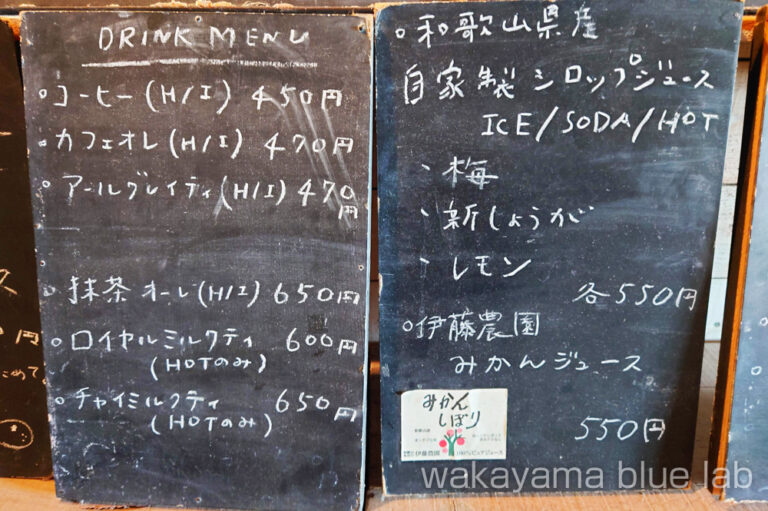 DRINK MENU
コーヒー(H/I) 450円
カフェオレ(H/I) 470円
アールグレイティ(H/I) 470円
抹茶オーレ(H/I) 650円
ロイヤルミルクティ 600円
(HOTのみ)
チャイミルクティ 650円
(HOTのみ)
和歌山県産
自家製シロップジュース
ICE/SODA/HOT
、梅
、新しょうが
、レモン
各550円
伊藤農園
みかんジュース
みかん
しぼり
伊藤農園
550円
wakayama blue lab